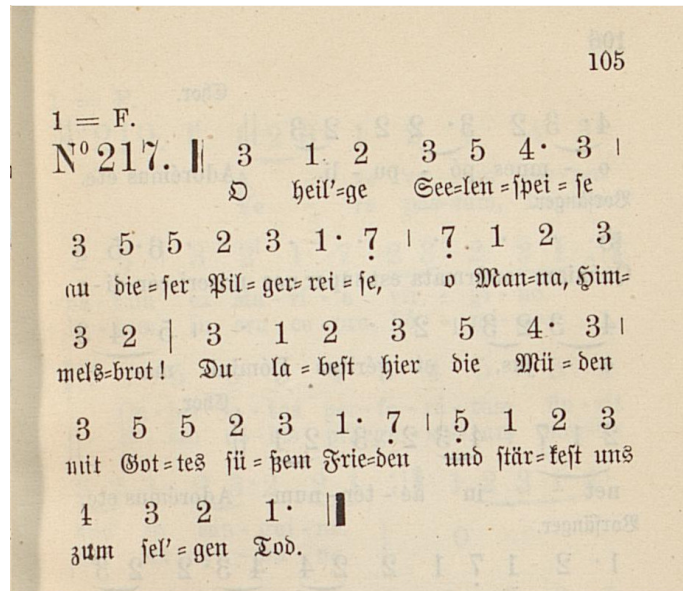 105
1 = F.
Nº 217. 3 1 2 3 5 4· 3 |
O heil'=ge See=len=spei=se
3 5 5 2 3 1· 7̣ | 7̣ 1 2 3
au die=ser Pil=ger=rei=se, o Man=na, Him=
3 2 | 3 1 2 3 5 4· 3 |
mels=brot! Du la=best hier die Mü=den
3 5 5 2 3 1· 7̣ | 5̣ 1 2 3
mit Got=tes sü=ßem Frie=den und stär=kest uns
1 3 2 1· ||
zum sel'=gen Tod.